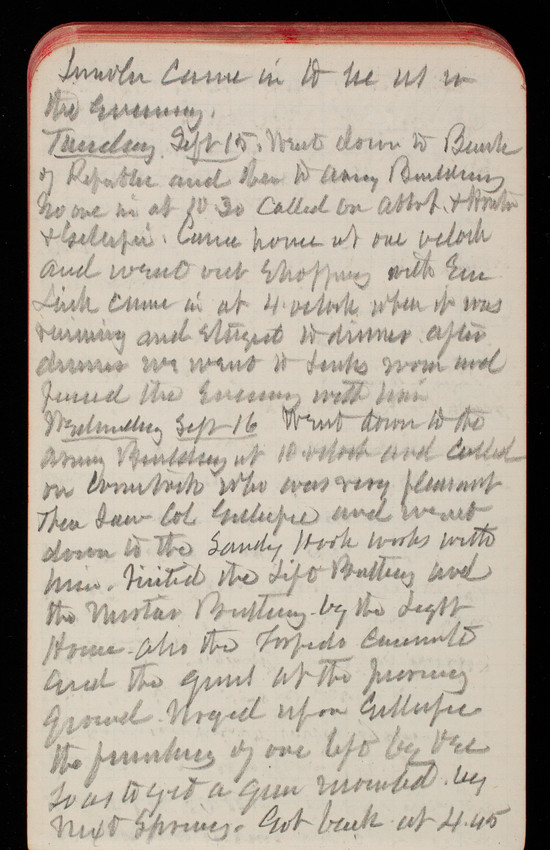 Lincoln came in to see us in
the evening.
Tuesday Sept 15. Went down to Bank
of Republic and then to army Building
No one in at 10.30 Called on Abbot &
& Gillespie. Came home at one oclock
and went out shopping with Em
Link came in at 4 oclock when it was
raining and stayed to dinner. after
dinner we went to Links room and
passed the evening with him
Wednesday Sept 16 Went down to the
army Building at 10 oclock and called
on Comstock who was very pleasant
Then saw Col Gillespie and went
down to the Sandy Hook works with
him. Visited the Lift Battery and
the Mortar Battery by the Light
House. also the Torpedo casemate
and the guns at the proving
ground. Urged upon Gillespie
the finishing of one lift by Dec
so as to get a gun mounted by
next Spring. Got back at 4.45